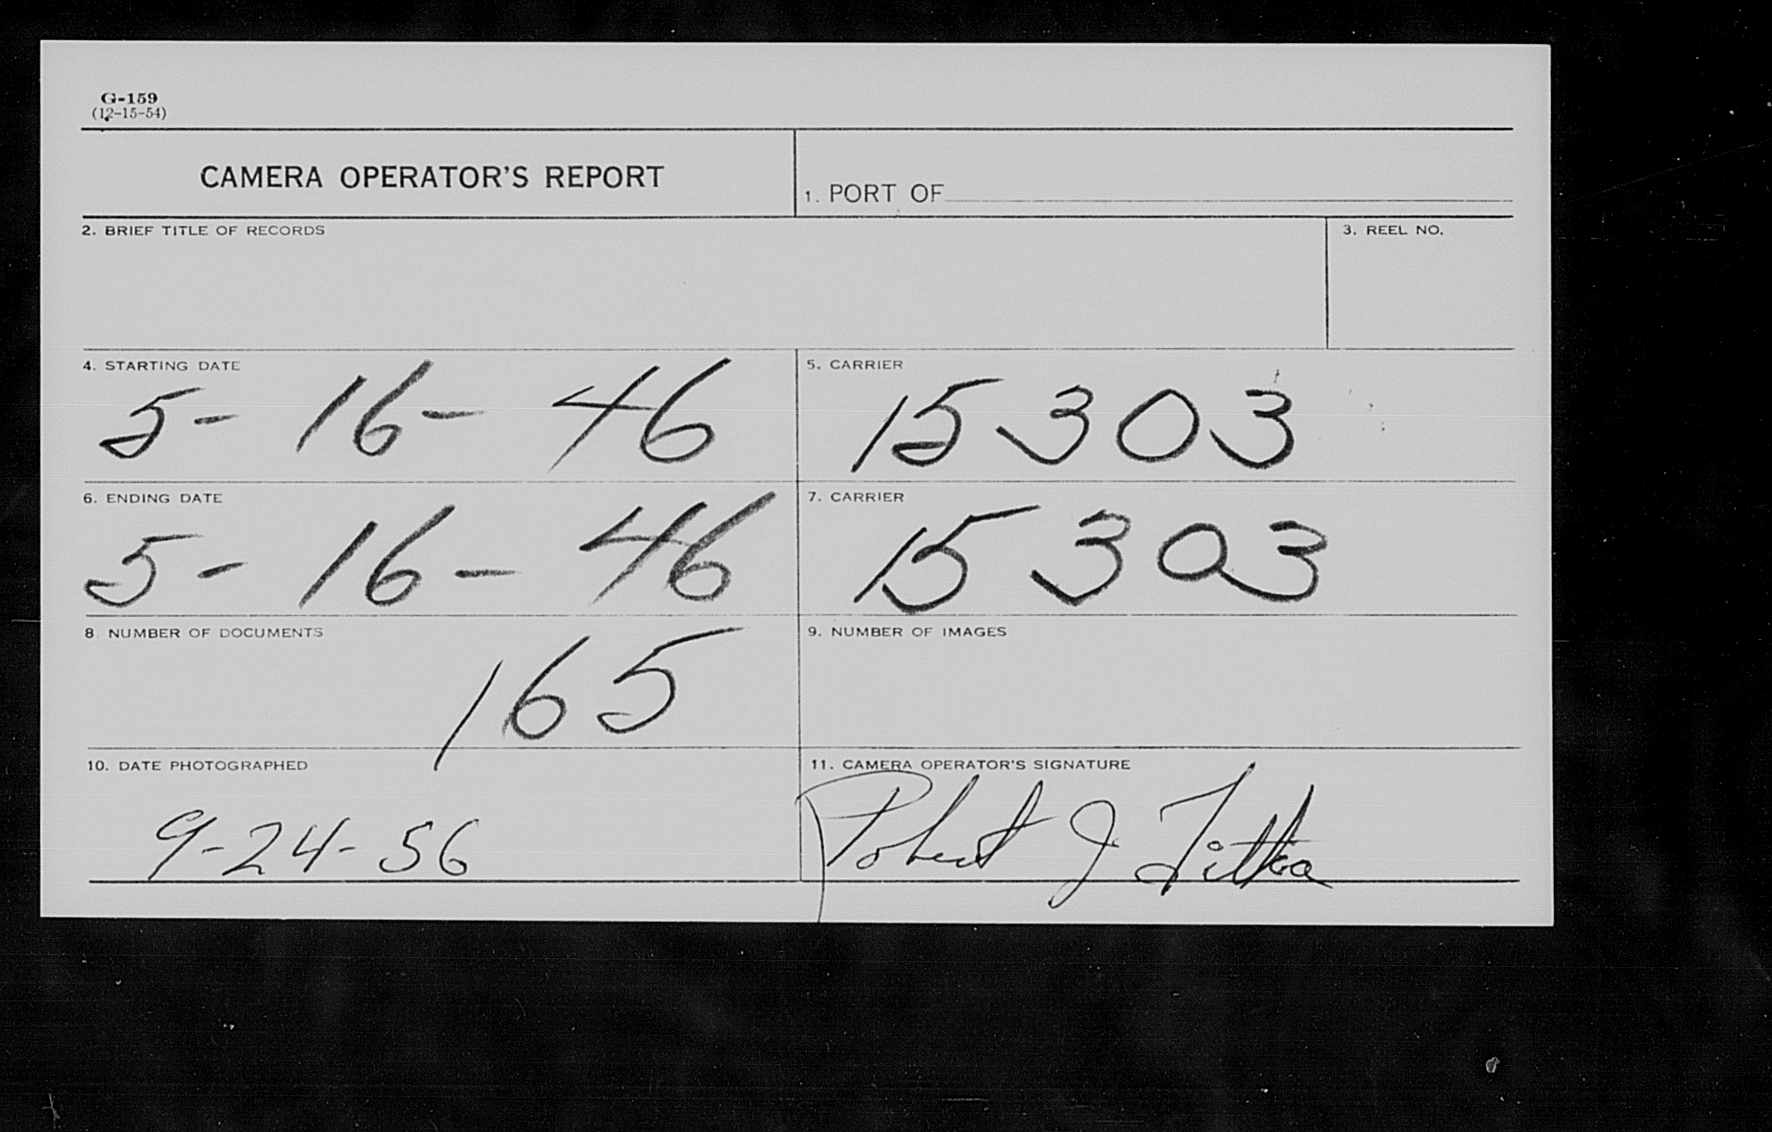 G-159
(12-15-54)
CAMERA OPERATOR'S REPORT
1. PORT OF
2. BRIEF TITLE OF RECORDS
3. REEL NO.
4. STARTING DATE
5-16-46
5. CARRIER
15303
6. ENDING DATE
5-16-46
7. CARRIER
15303
8. NUMBER OF DOCUMENTS
165
9. NUMBER OF IMAGES
10. DATE PHOTOGRAPHED
9-24-56
11. CAMERA OPERATOR'S SIGNATURE
Robert J